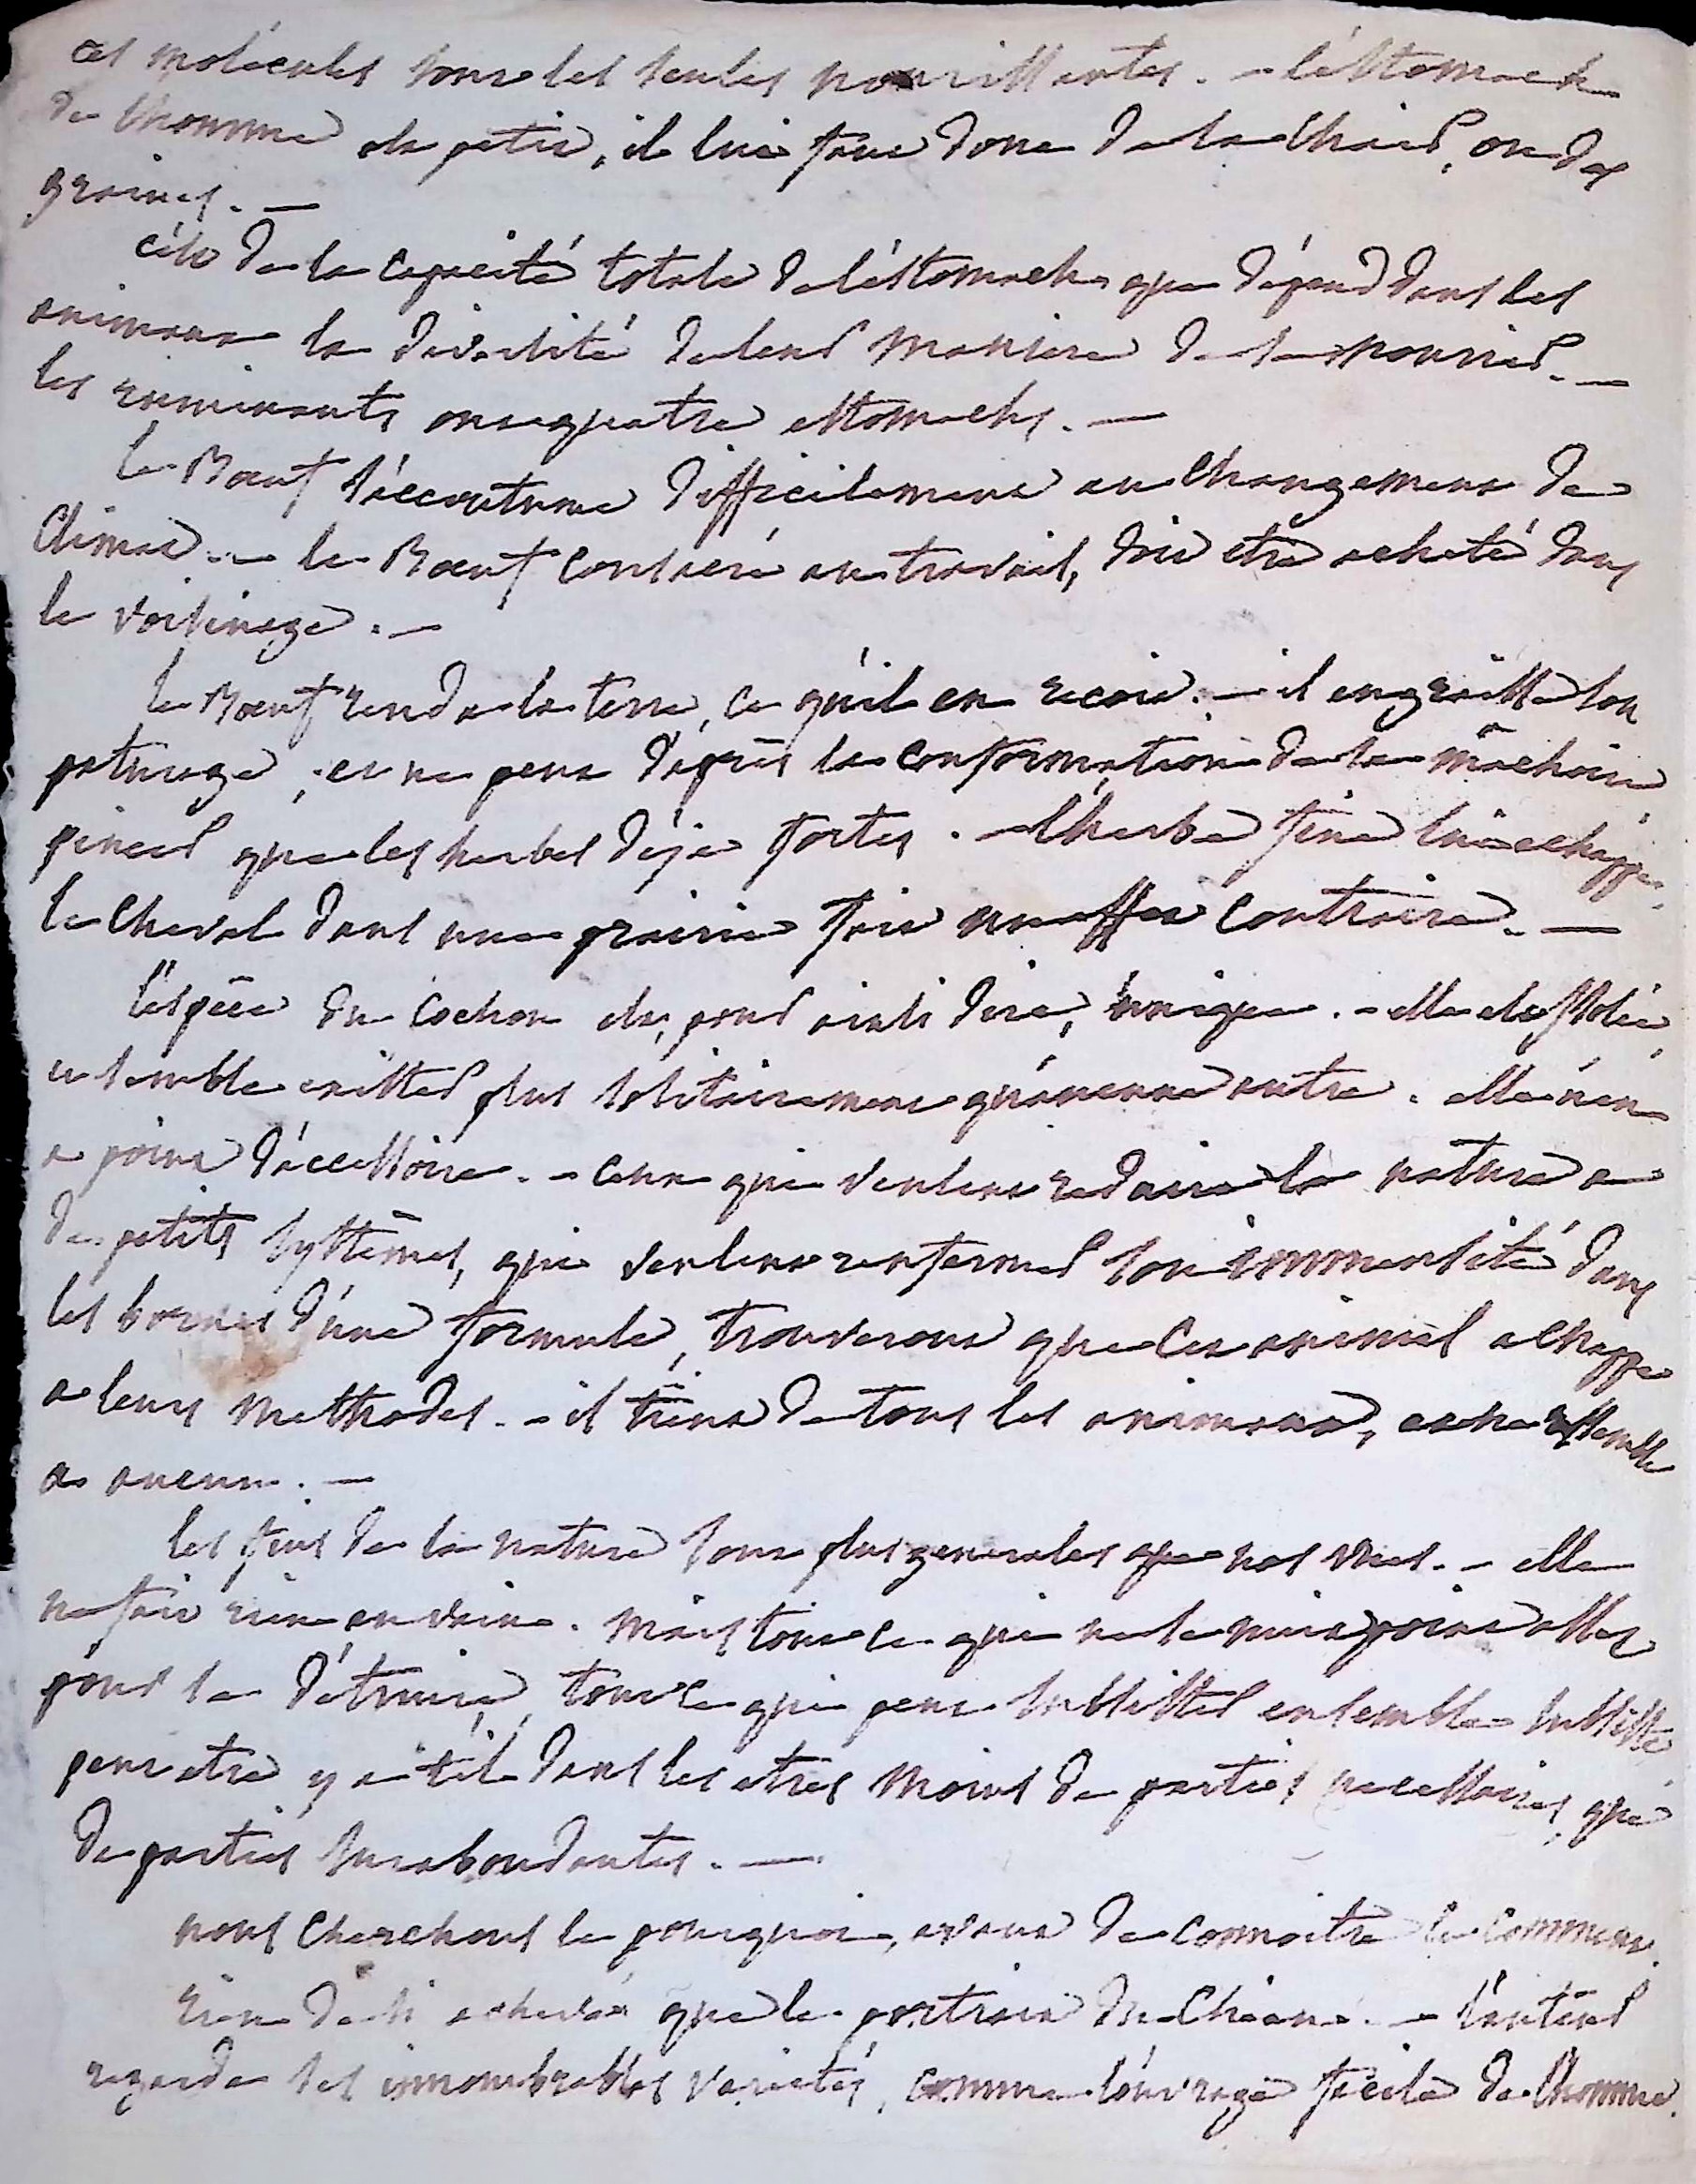 ces molécules sont les seules nourrissantes. - l'éstomach
de l'homme est petit, il lui faut donc de la chair, ou des
graines. —
c'ést de la capacité totale de l'éstomach que dépend dans les
animaux la diversité de leur maniere de se nourrir. —
les ruminants ont quatre estomachs. —
le Bœuf s'accoutume difficilement au changement de
climat. - le Bœuf consacré au travail, doit etre acheté dans
le voisinage. —
le Bœuf rend a la terre, ce qu'il en recoit. - il engraisse son
paturage, et ne peut d'après la conformation de sa mâchoire
pincer que les herbes déja fortes. - l'herbe fine lui echappe,
le cheval dans une prairie fait un effet contraire. —
l'espéce du cochon est, pour ainsi dire, unique. - elle est isolée,
et semble exister plus solitairement qu'aucune autre. elle n'en
a point d'accessoire. - ceux qui veulent reduire la nature a
de petits systèmes, qui veulent renfermer son immensité dans
les bornes d'une formule, trouveront que cet animal echappe
a leurs methodes. - il tient de tous les animaux, et ne ressemble
a aucun. —
les fins de la nature sont plus generales que nos vues. - elle
ne fait rien en vain. mais tout ce qui ne se nuit point assez
pour se détruire, tout ce qui peut subsister ensemble subsiste,
peut etre y a t'il dans les etres moins de parties necessaires, que
de parties surabondantes. —
nous cherchons le pourquoi, avant de connoitre le comment.
rien de si achevé que le portrait du chien. - l'auteur
regarde ses innombrables varietés, comme l'ouvrage facile de l'homme.